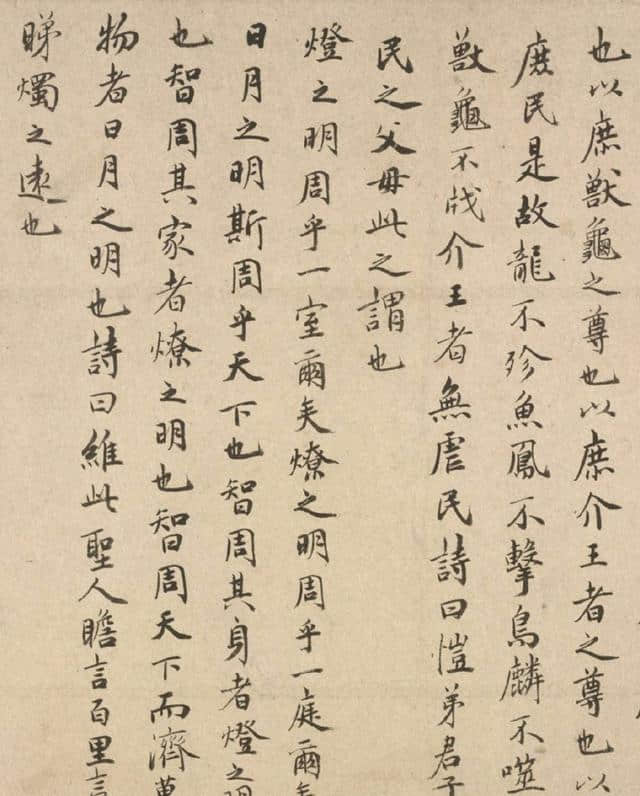 也以庶獸龜之尊也以庶介王者之尊也以
庶民是故龍不殄魚鳳不擊鳥麟不噬
獸龜不戕介王者無虐民詩曰愷弟君子
民之父母此之謂也
燈之明周乎一室爾矣燎之明周乎一庭爾矣
日月之明斯周乎天下也智周其身者燈之明
也智周其家者燎之明也智周天下而濟萬
物者日月之明也詩曰維此聖人瞻言百里言
睇燭之遠也